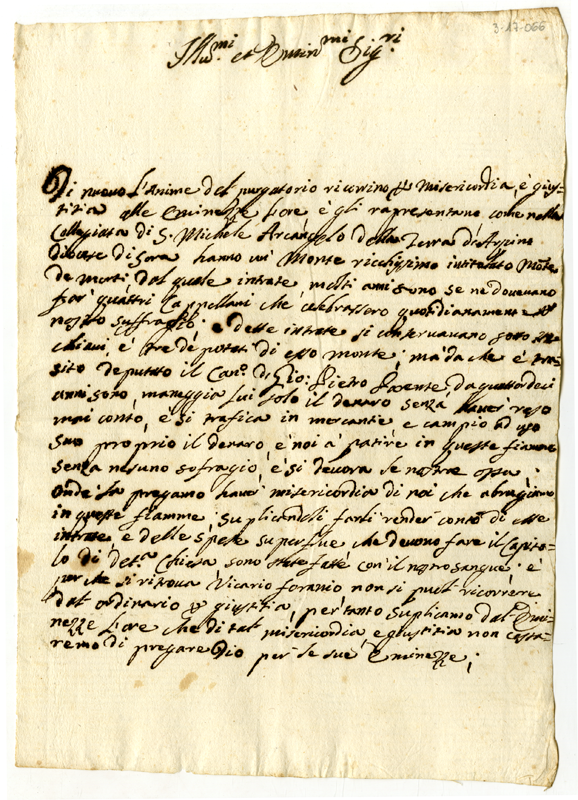 3-17-066
Ill.mi et Emin.mi Sig.ri
Di nuovo L'Anime del purgatorio ricorrino per misericordia, è gius-
titia alle Eminezze Loro è gli rapresentano come nella
Collegiata di S. Michele Arcangelo della Terra d'Arpino
diocese di Sora hanno un' Monte ricchissimo intitolato Monte
de morti, dal quale intrate molti anni sono se ne dovevano
far' quattro Cappellani che celebrassero quotidianamente per
nostro suffragio, e dette intrate si conservavano sotto tre
chiavi, è tre deputati di esso monte, ma da che è
sito deputato il Can.o D. Gio: Pietro da quattordeci
anni sono, maneggia lui solo il denaro senza haver' reso
mai conto, è si trafica in mercantie, e campio ad uso
suo proprio il denaro, è noi à patire in queste fiamme
senza nesuno sofragio, è si devora le nostre ossa.
Onde la pregamo haver misericordia di noi che abrugiamo
in queste fiamme, suplicandoli farli render conto di esse
intrate, e delle spese superflue che devono fare il Capito-
lo di det.a Chiesa sono state fatte con il nostro sangue: è
perche si ritrova Vicario foranio non si puol ricorrere
dal ordinario per giustitia, per tanto suplicamo dal' Emi-
nezze Loro che di tal misericordia, e giustitia non cessa-
remo di pregare Dio per le sue Eminezze;